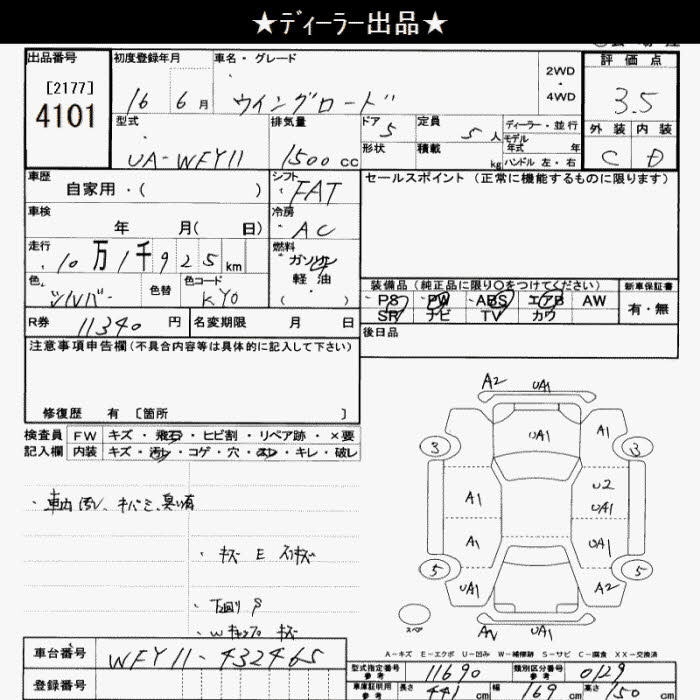 ★ディーラー出品★
出品番号 初度登録年月 車名・グレード 評価点
[2177] 2WD
4101 16 6月 ウイングロード 4WD 3.5
型式 排気量 ドア 5 定員 5人 ディーラー・並行 外装 内装
UA-WFY11 1500cc 形状 積載 kg モデル年式 年 C D
ハンドル 左・右
車歴 シフト セールスポイント(正常に機能するものに限ります)
自家用・( ) FAT
車検 冷房
年 月( 日) AC
走行 燃料
10万1千925km ガソリン
色 色替 色コード 軽油 装備品(純正品に限り○をつけてください) 新車保証書
シルバー KY0 ( ) PS PW ABS エアB AW 有・無
R券 11340円 名変期限 月 日 SR ナビ TV カワ
後日品
注意事項申告欄(不具合内容等は具体的に記入して下さい)
修復歴 有 〔箇所 〕
検査員 FW キズ・飛石・ヒビ割・リペア跡・×要
記入欄 内装 キズ・汚レ・コゲ・穴・スレ・キレ・破レ
・車内汚レ、キバミ、臭い有
・キズ E スリキズ
・下廻り
・Wキャップ キズ
A2 UA1
UA1 A1
3 3
A1 U2
UA1
A1 UA1
5 5
UA1 A2
スペア UA1
A-キズ E-エクボ U-凹み W-補修跡 S-サビ C-腐食 XX-交換済
車台番号 WFY11-432465
型式指定番号 参考 11690 類別区分番号 参考 0129
登録番号 車庫証明用 参考 長さ 441cm 幅 169cm 高さ 150cm